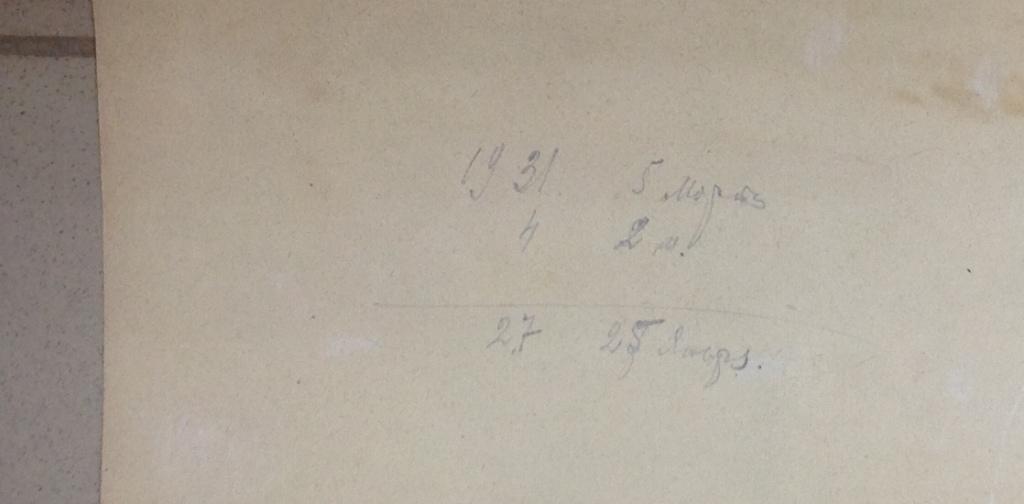 1931 5 Марта
4 2 м.
27 25 Января.